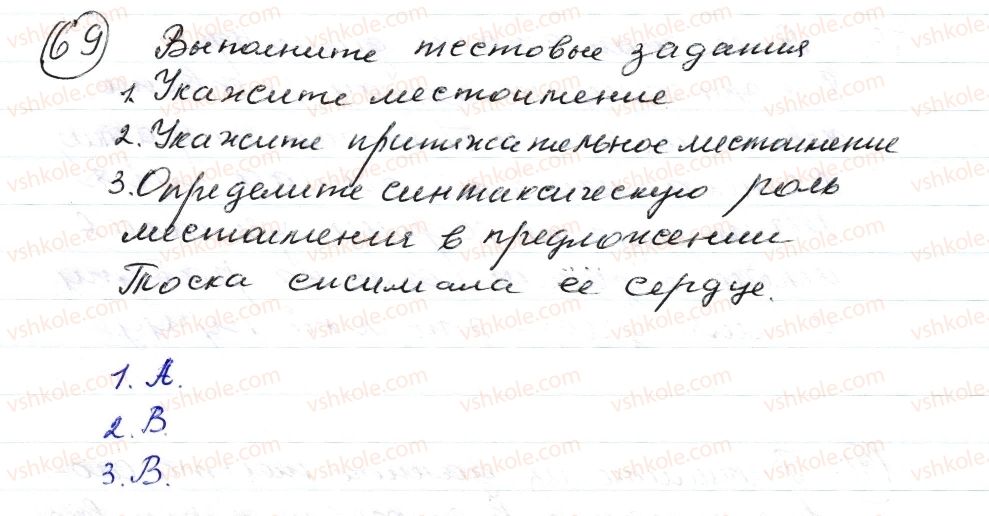 69 Выполните тестовые задания
1. Укажите местоимение
2. Укажите притяжательное местоимение
3. Определите синтаксическую роль
местоимения в предложении
Тоска сжимала её сердце.
1. А.
2. В.
3. В.